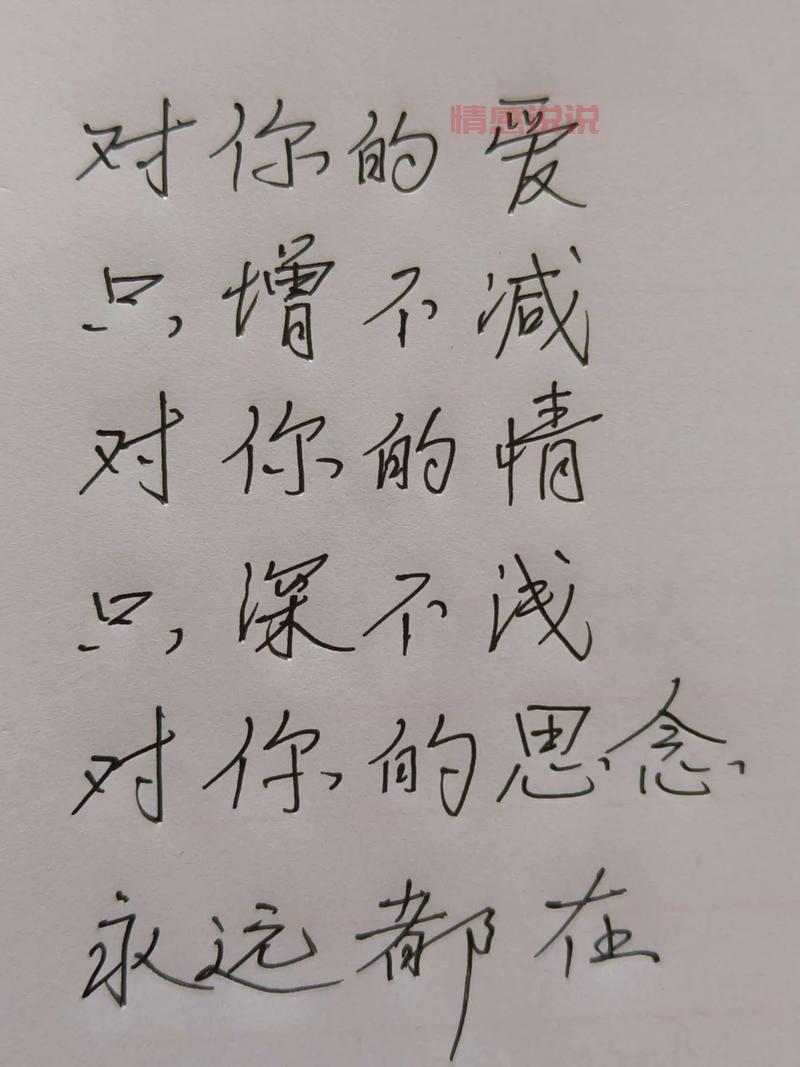 情感说说
对你的爱
只增不减
对你的情
只深不浅
对你的思念
永远都在